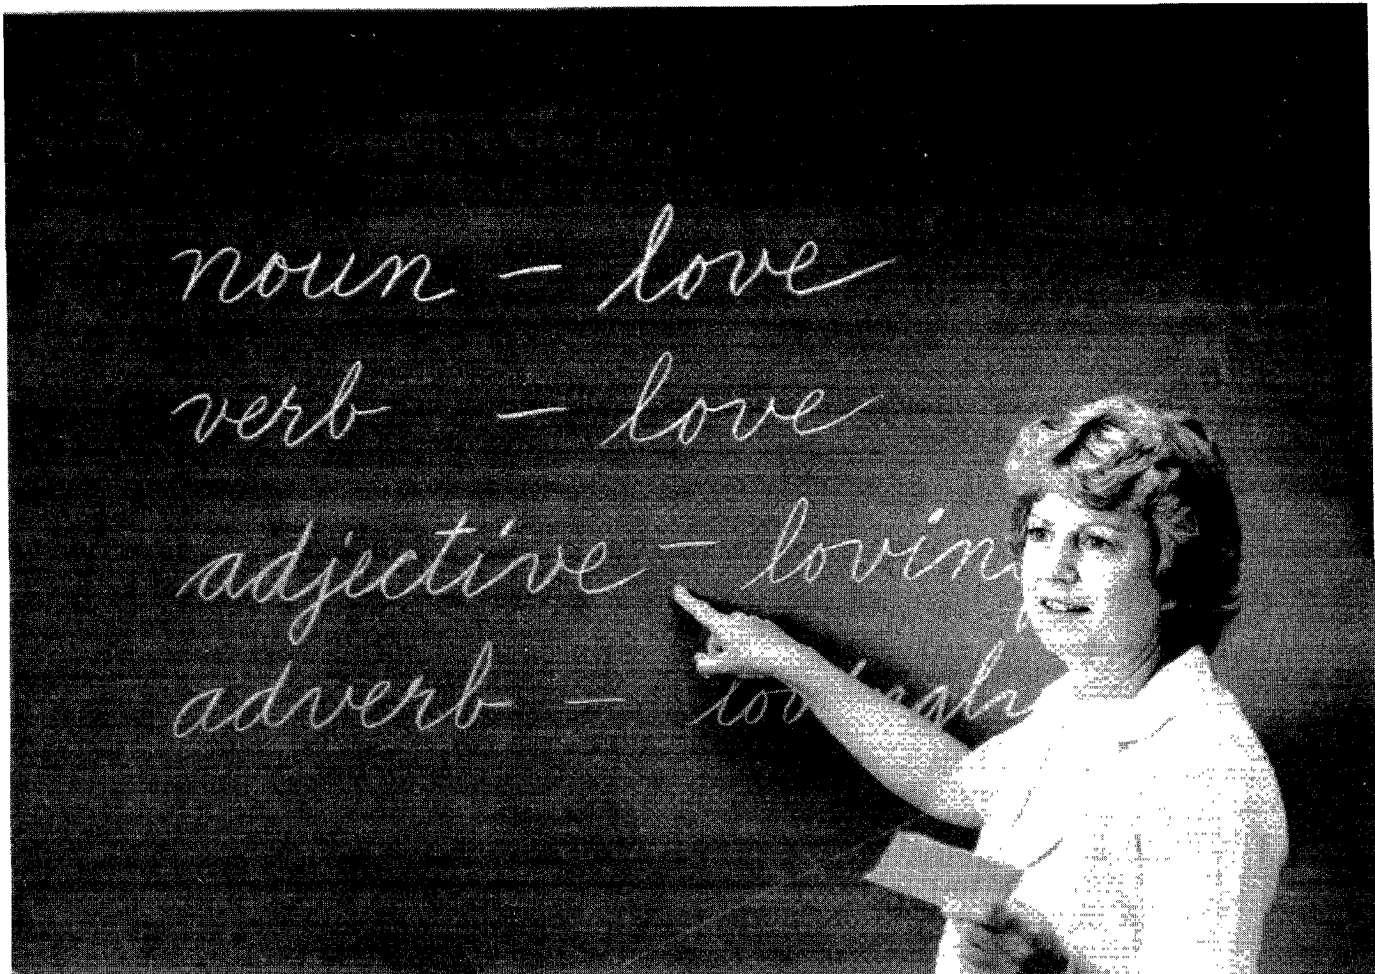 noun - love
verb - love
adjective - loving
adverb - lovingly